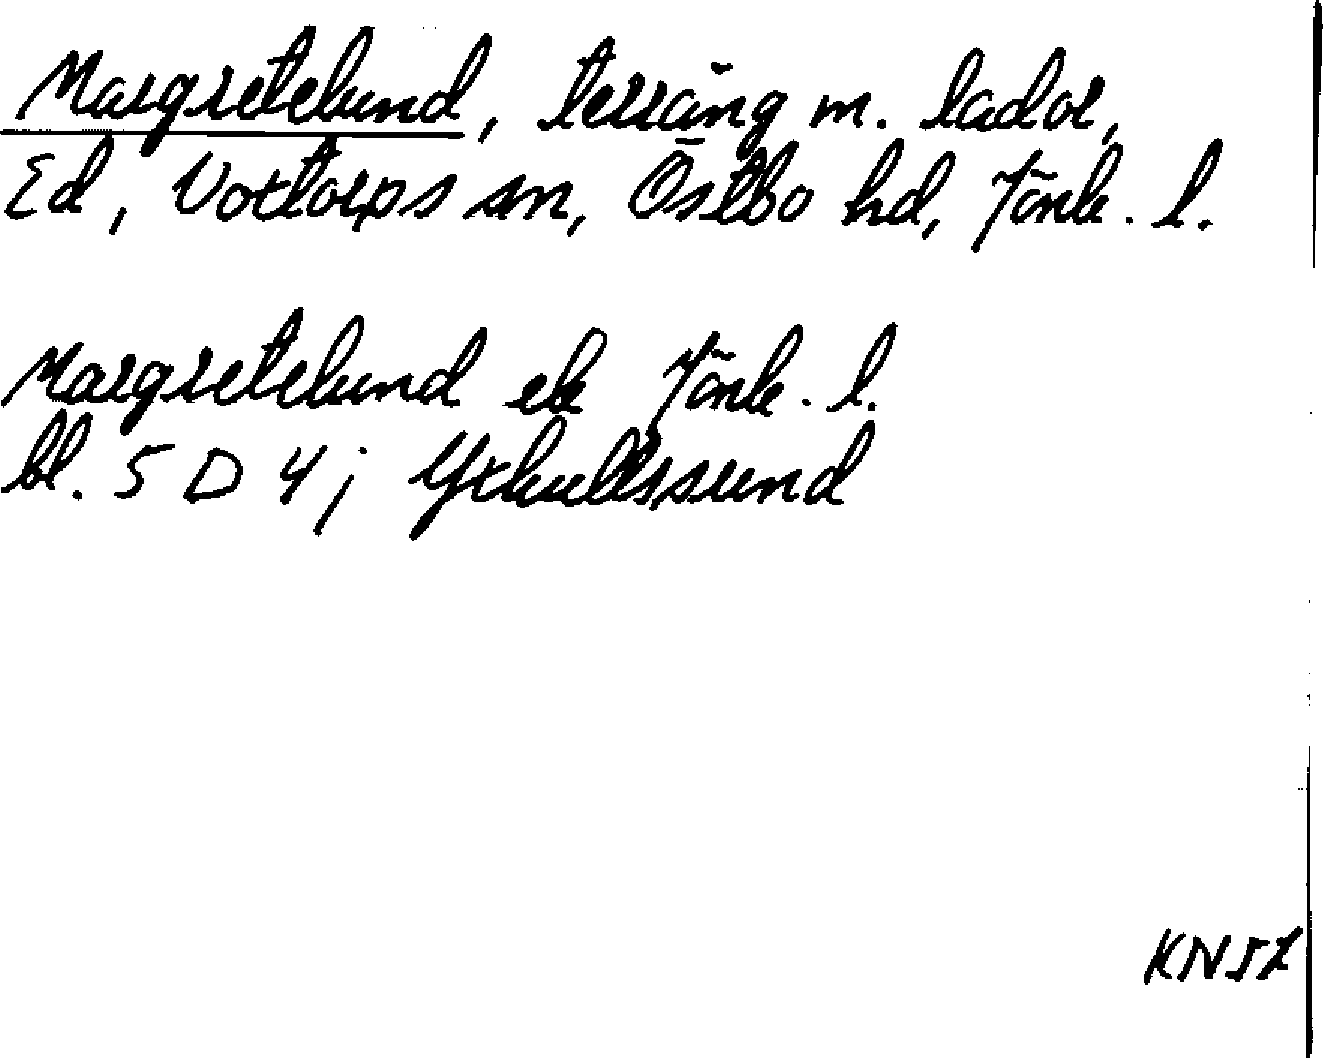 Margretelund, terräng m. lador,
Ed, Voxtorps sn, Östbo hd, Jönk. l.
Margretelund ek Jönk. l.
bl. 5 D 4; Yxkullssund